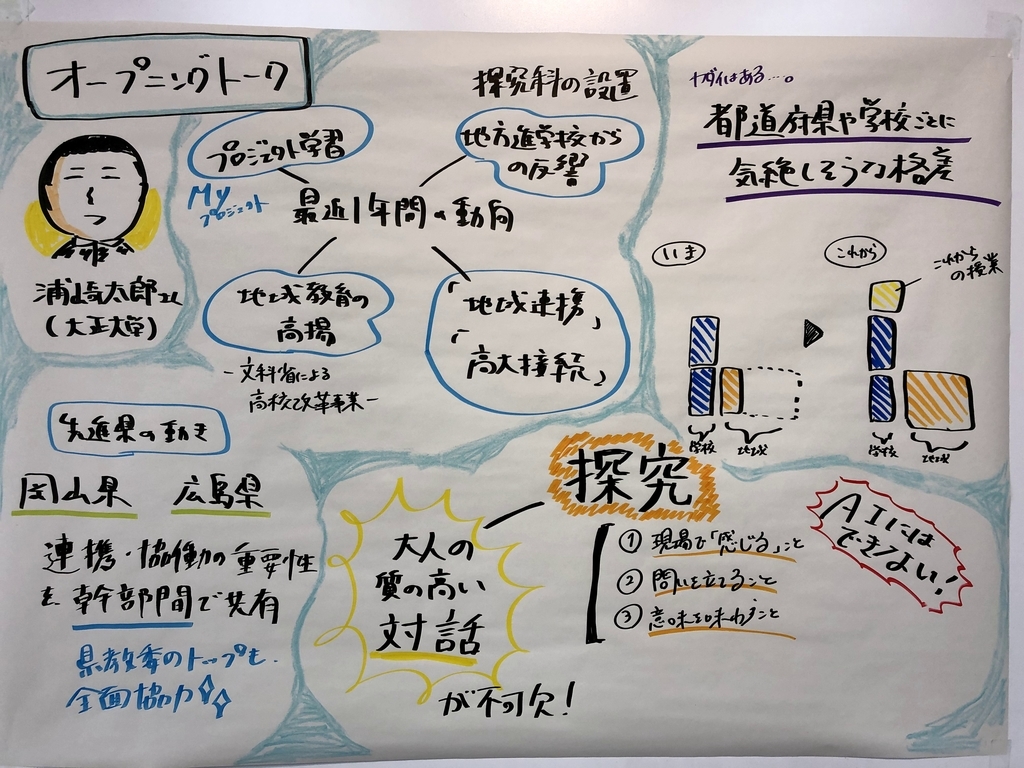 オープニングトーク
浦崎太郎さん
(大正大学)
探究科の設置
プロジェクト学習
地方進学校から
の反響
My
プロジェクト
最近1年間の動向
地域教育の
高揚
-文科省による
高校改革事業-
「地域連携」
「高大接続」
ナガイはある…。
都道府県や学校ごとに
気絶しそうな格差
いま
これから
これから
の授業
学校
地域
学校
地域
先進県の動き
岡山県
広島県
連携・協働の重要性
を幹部間で共有
県教委のトップも
全面協力
探究
大人の
質の高い
対話
が不可欠!
① 現場で「感じる」こと
② 問いを立てること
③ 意味を味わうこと
AIには
できない!